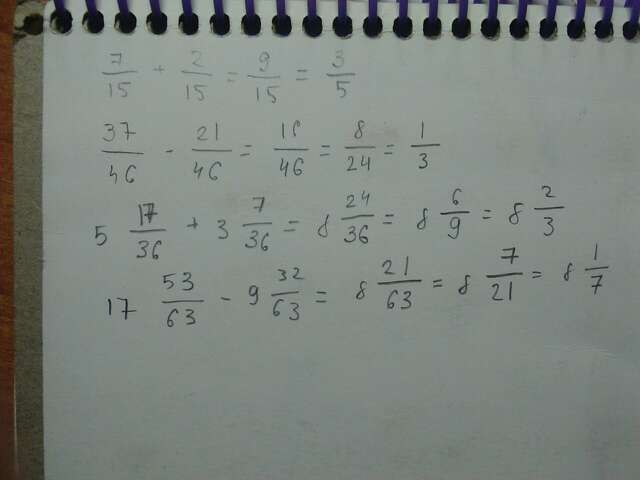 7/15 + 2/15 = 9/15 = 3/5
37/46 - 21/46 = 16/46 = 8/24 = 1/3
5 17/36 + 3 7/36 = 8 24/36 = 8 6/9 = 8 2/3
17 53/63 - 9 32/63 = 8 21/63 = 8 7/21 = 8 1/7